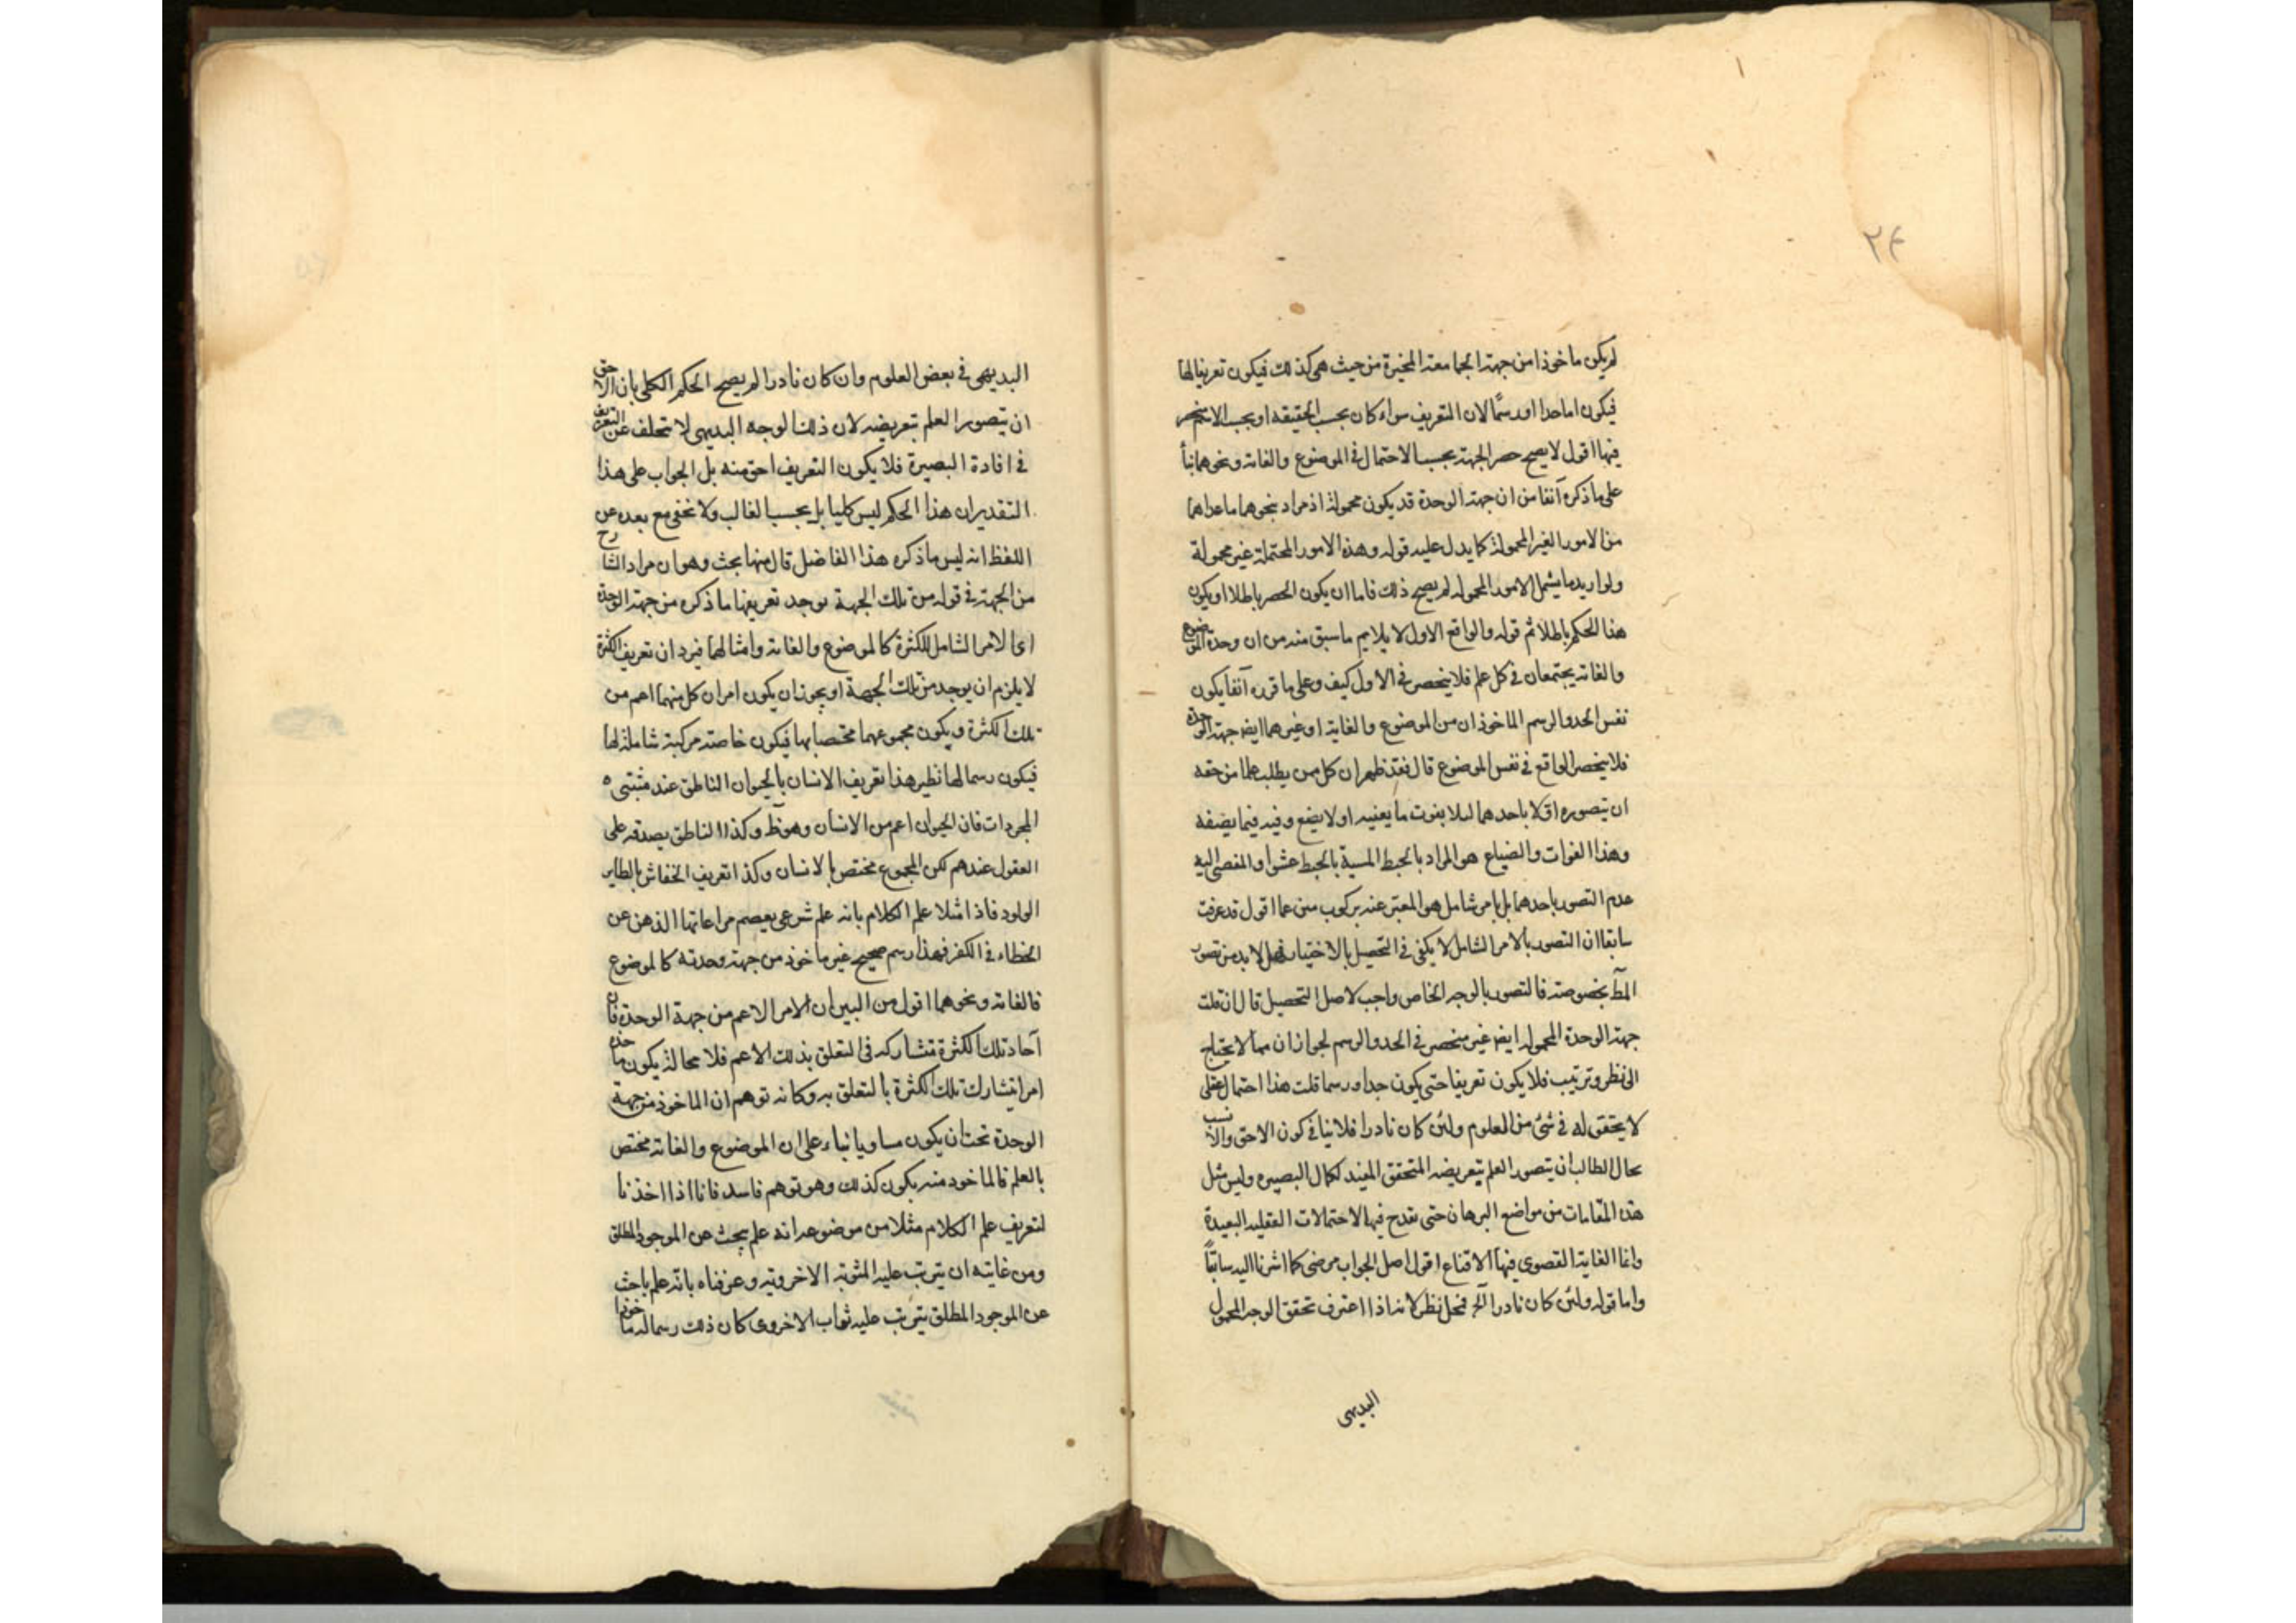 ٢٤
لم يكن ماخوذا من جهة الجامعة المخيرة من حيث هى كذلك فيكون تعريفا لها
فيكون اما حدا او رسمًا لان التعريف سواء كان بحسب الحقيقه او بحسب الاسم منحصر
فيها اقول لا يصح حصر الجهة بحسب الاحتمال فى الموضوع والغاية ونحوهما بنأ
على ما ذكره آنفا من ان جهة الوحدة قد يكون محمولة اذ مراد بنحوهما ما عداهما
من الامور الغير المحمولة كما يدل عليه قوله وهذه الامور المحتملة غير محمولة
ولو اريد ما يشمل الامور المحموله لم يصح ذلك فاما ان يكون الحصر باطلا او يكون
هذا الحكم باطلا ثم قوله والواقع الاول لا يلايم ما سبق منه من ان وحدة الموضوع
والغاية يجتمعان فى كل علم فلا ينحصر فى الاول كيف وعلى ما قرره آنفا يكون
نفس الحد والرسم الماخوذان من الموضوع والغاية او غيرهما ايض جهة الوحدة
فلا ينحصر الواقع فى نفس الموضوع قال فقد ظهر ان كل من يطلب علما من حقه
ان يتصوره اولا باحدهما لئلا يفوت ما يعنيه او لا يضع وفيه فيما يضيفه
وهذا الفوات والضياع هو المراد بالخبط المسية بالخبط عشوا و المفضى اليه
عدم التصور باحدهما بل بامر شامل هو المعبر عنه بركوب متن عما اقول قد عرفت
سابقا ان التصور بالامر الشامل لا يكفى فى التحصيل بالاختيار بل لا بد من تصور
المط بخصوصه فالتصور بالوجه الخاص واجب لاصل التحصيل قال ان قلت
جهة الوحدة المحموله ايض غير منحصر فى الحد والرسم لجواز ان مما لا يحتاج
الى نظر وترتيب فلا يكون تعريفا حتى يكون حدا و رسما قلت هذا احتمال عقلى
لا يتحقق له فى شئ من العلوم ولئن كان نادرا فلا ينافى كون الاحق والانسب
بحال الطالب ان يتصور العلم بتعريفه المتحقق المفيد لكمال البصيره وليس مثل
هذه المقامات من مواضع البرهان حتى يقدح فيها الاحتمالات العقليه البعيدة
وانما الغاية القصوى فيها الاقناع اقول اصل الجواب مرضى كما اشرنا اليه سابقًا
واما قوله ولئن كان نادرا الخ فمحل نظر لانه اذا اعترف تحقق الوجه المحمول
البديهى
البديهى فى بعض العلوم وان كان نادرا لم يصح الحكم الكلى بان الاحق
ان يتصور العلم بتعريفه لان ذلك الوجه البديهى لا يتخلف عن التعريف
فى افادة البصيرة فلا يكون التعريف احق منه بل الجواب على هذا
التقدير ان هذا الحكم ليس كليا بل بحسب الغالب ولا يخفى مع بعده عن
اللفظ انه ليس ما ذكره هذا الفاضل قال منها بحث وهو ان مراد الشارح
من الجهة فى قوله من تلك الجهة يوجد تعريفها ما ذكره من جهة الوحدة
اى الامر الشامل للكثرة كالموضوع والغاية وامثالهما فيرد ان تعريف الكثرة
لا يلزم ان يوجد من تلك الجهة او يجوز ان يكون امران كل منهما اعم من
تلك الكثرة ويكون مجموعهما مختصا بها فيكون خاصة مركبة شاملة لها
فيكون رسما لها نظير هذا تعريف الانسان بالحيوان الناطق عند مثبتى ه
المجردات فان الحيوان اعم من الانسان وهو ظ وكذا الناطق يصدقه على
العقول عندهم لكن المجموع مختص بالانسان وكذا تعريف الخفاش بالطاير
الولود فاذا مثلا علم الكلام بانه علم شرعى يعصم مراعاتها الذهن عن
الخطاء فى الكفر فهذا رسم صحيح غير ماخوذ من جهة وحدته كالموضوع
فالغاية ونحوهما اقول من البين ان الامر الاعم من جهة الوحدة فان
آحاد تلك الكثرة تتشاركه فى التعلق بذلك الاعم فلا محالة يكون ماخذه
امرا تشارك تلك الكثرة بالتعلق به وكانه توهم ان الماخوذ من جهة
الوحدة تحت ان يكون مساويا بناء على ان الموضوع والغاية مختص
بالعلم فالماخوذ منه يكون كذلك وهو توهم فاسد فانا اذا اخذنا
لتعريف علم الكلام مثلا من موضوعه انه علم يبحث عن الموجود المطلق
ومن غايته ان يترتب عليه المثوبة الاخروية وعرفناه بانه علم باحث
عن الموجود المطلق يترتب عليه ثواب الاخروى كان ذلك رسما له ماخوذا